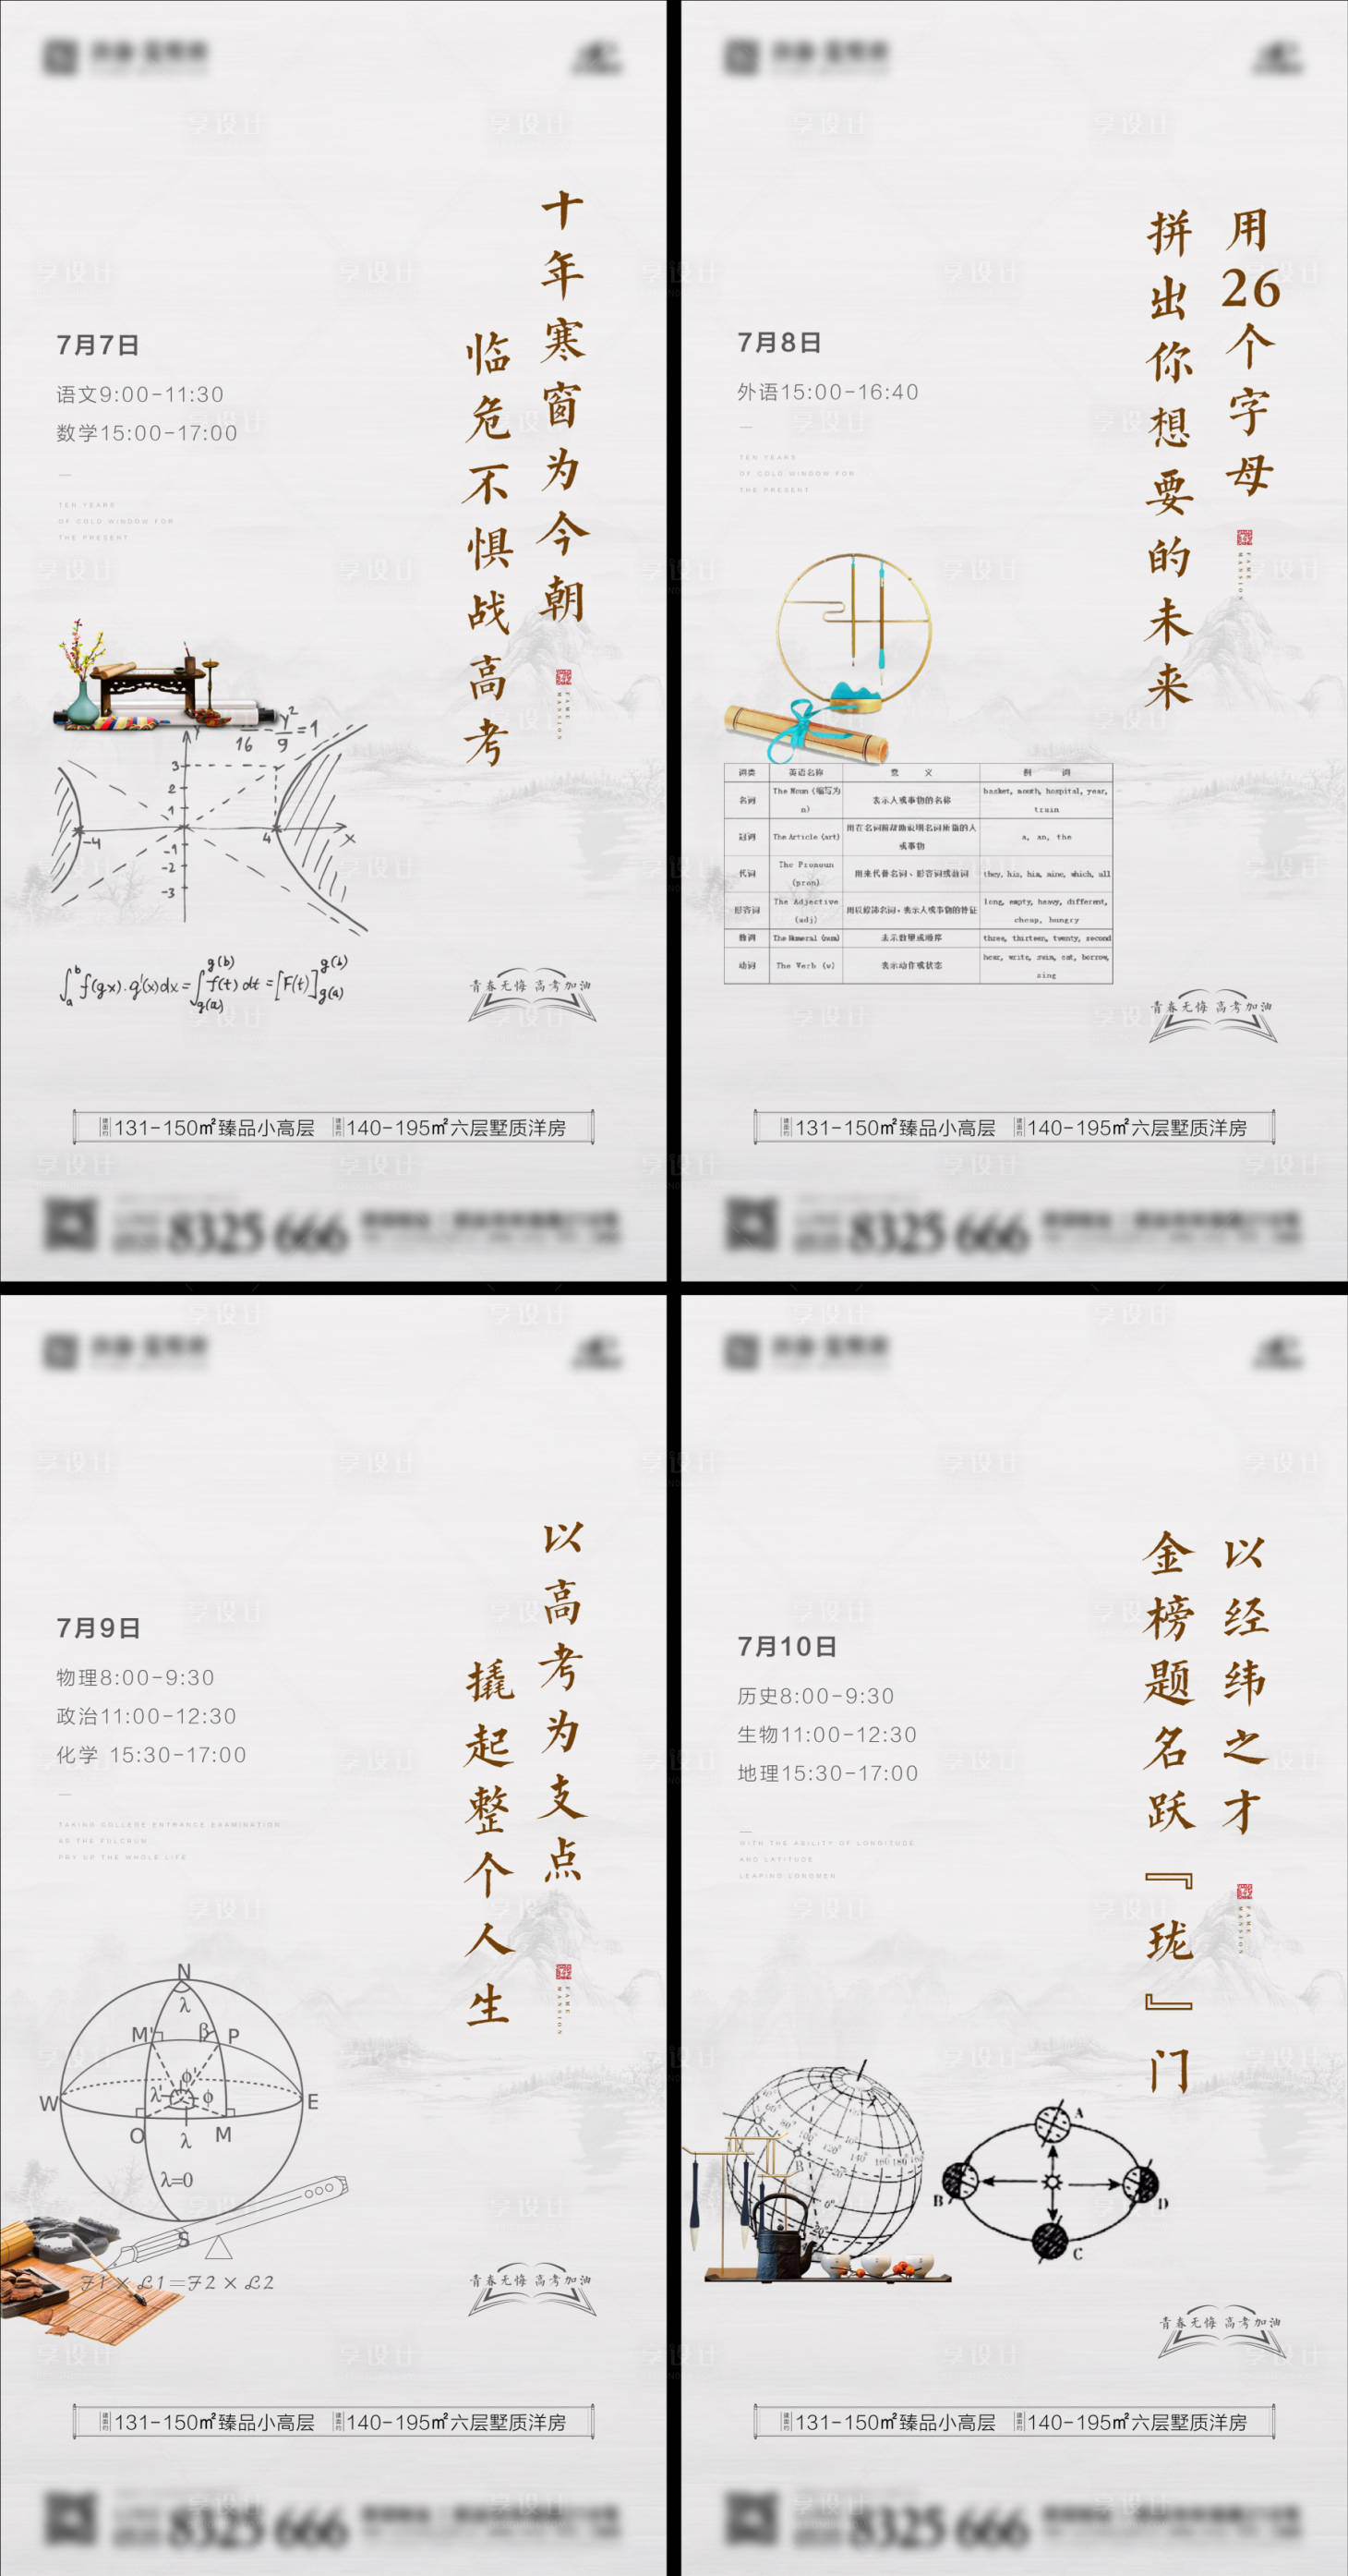 十年寒窗为今朝
临危不惧战高考
7月7日
语文9:00-11:30
数学15:00-17:00
TEN YEARS
OF COLD WINDOW FOR
THE PRESENT
FAME
MANSION
16 y² 9 =1
Y
3
2
1
-4
4
X
-1
-2
-3
∫ₐᵇ f(gx)·g'(x)dx=∫g(a)g(b) f(t) dt =[F(t)]g(a)g(b)
青春无悔 高考加油
建面约 131-150㎡臻品小高层 建面约 140-195㎡六层墅质洋房
8325 666
用26个字母
拼出你想要的未来
7月8日
外语15:00-16:40
TEN YEARS
OF COLD WINDOW FOR
THE PRESENT
FAME
MANSION
词类 英语名称 意 义 例 词
名词 The Noun (缩写为n) 表示人或事物的名称 basket, mouth, hospital, year, train
冠词 The Article (art) 用在名词前帮助说明名词所指的人或事物 a, an, the
代词 The Pronoun (pron) 用来代替名词、形容词或数词 they, his, him, mine, which, all
形容词 The Adjective (adj) 用以修饰名词，表示人或事物的特征 long, empty, heavy, different, cheap, hungry
数词 The Numeral (num) 表示数量或顺序 three, thirteen, twenty, second
动词 The Verb (v) 表示动作或状态 hear, write, swim, eat, borrow, sing
青春无悔 高考加油
建面约 131-150㎡臻品小高层 建面约 140-195㎡六层墅质洋房
8325 666
以高考为支点
撬起整个人生
7月9日
物理8:00-9:30
政治11:00-12:30
化学 15:30-17:00
TAKING COLLEGE ENTRANCE EXAMINATION
AS THE FULCRUM
PRY UP THE WHOLE LIFE
FAME
MANSION
N
λ
M' β P
W λ' ϕ' ϕ E
O λ M
λ=0
S
F1 × L1=F2 × L2
青春无悔 高考加油
建面约 131-150㎡臻品小高层 建面约 140-195㎡六层墅质洋房
8325 666
以经纬之才
金榜题名跃『珑』门
7月10日
历史8:00-9:30
生物11:00-12:30
地理15:30-17:00
WITH THE ABILITY OF LONGITUDE
AND LATITUDE
LEAPING LONGMEN
FAME
MANSION
A
B
D
C
青春无悔 高考加油
建面约 131-150㎡臻品小高层 建面约 140-195㎡六层墅质洋房
8325 666
享设计